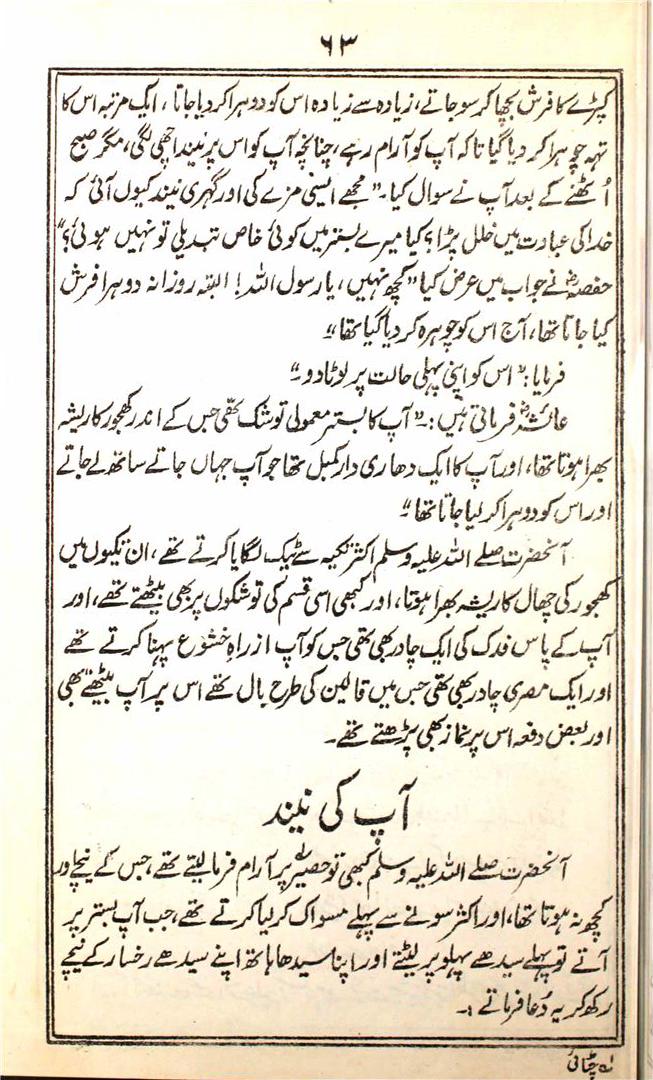 ۶۳
کپڑے کا فرش بچھا کر سو جاتے، زیادہ سے زیادہ اس کو دوہرا کر دیا جاتا، ایک مرتبہ اس کا
تہہ چوہرا کر دیا گیا تاکہ آپ کو آرام رہے، چنانچہ آپ کو اس پر نیند اچھی لگی، مگر صبح
اُٹھنے کے بعد آپ نے سوال کیا۔ "مجھے ایسی مزے کی اور گہری نیند کیوں آئی کہ
خدا کی عبادت میں خلل پڑا؟ کیا میرے بستر میں کوئی خاص تبدیلی تو نہیں ہوئی؟"
حفصہؓ نے جواب میں عرض کیا "کچھ نہیں، یا رسول اللہ! البتہ روزانہ دوہرا فرش
کیا جاتا تھا، آج اس کو چوہرہ کر دیا گیا تھا"
فرمایا: "اس کو اپنی پہلی حالت پر لوٹا دو۔"
عائشہؓ فرماتی ہیں:۔ "آپ کا بستر معمولی توشک تھی جس کے اندر کھجور کا ریشہ
بھرا ہوتا تھا، اور آپ کا ایک دھاری دار کمبل تھا جو آپ جہاں جاتے ساتھ لے جاتے
اور اس کو دوہرا کر لیا جاتا تھا"
آنحضرت صلے اللہ علیہ وسلم اکثر تکیہ سے ٹیک لگایا کرتے تھے، ان تکیوں میں
کھجور کی چھال کا ریشہ بھرا ہوتا، اور کبھی اسی قسم کی توشکوں پر بھی بیٹھتے تھے، اور
آپ کے پاس فدک کی ایک چادر بھی تھی جس کو آپ از راہِ خشوع پہنا کرتے تھے
اور ایک مصری چادر بھی تھی جس میں قالین کی طرح بال تھے اس پر آپ بیٹھتے بھی
اور بعض دفعہ اس پر نماز بھی پڑھتے تھے۔
آپ کی نیند
آنحضرت صلے اللہ علیہ وسلم کبھی تو حصیر۱؎ پر آرام فرما لیتے تھے، جس کے نیچے اور
کچھ نہ ہوتا تھا، اور اکثر سونے سے پہلے مسواک کر لیا کرتے تھے، جب آپ بستر پر
آتے تو پہلے سیدھے پہلو پر لیٹتے اور اپنا سیدھا ہاتھ اپنے سیدھے رخسار کے نیچے
رکھ کر یہ دُعا فرماتے:۔
۱؎ چٹائی